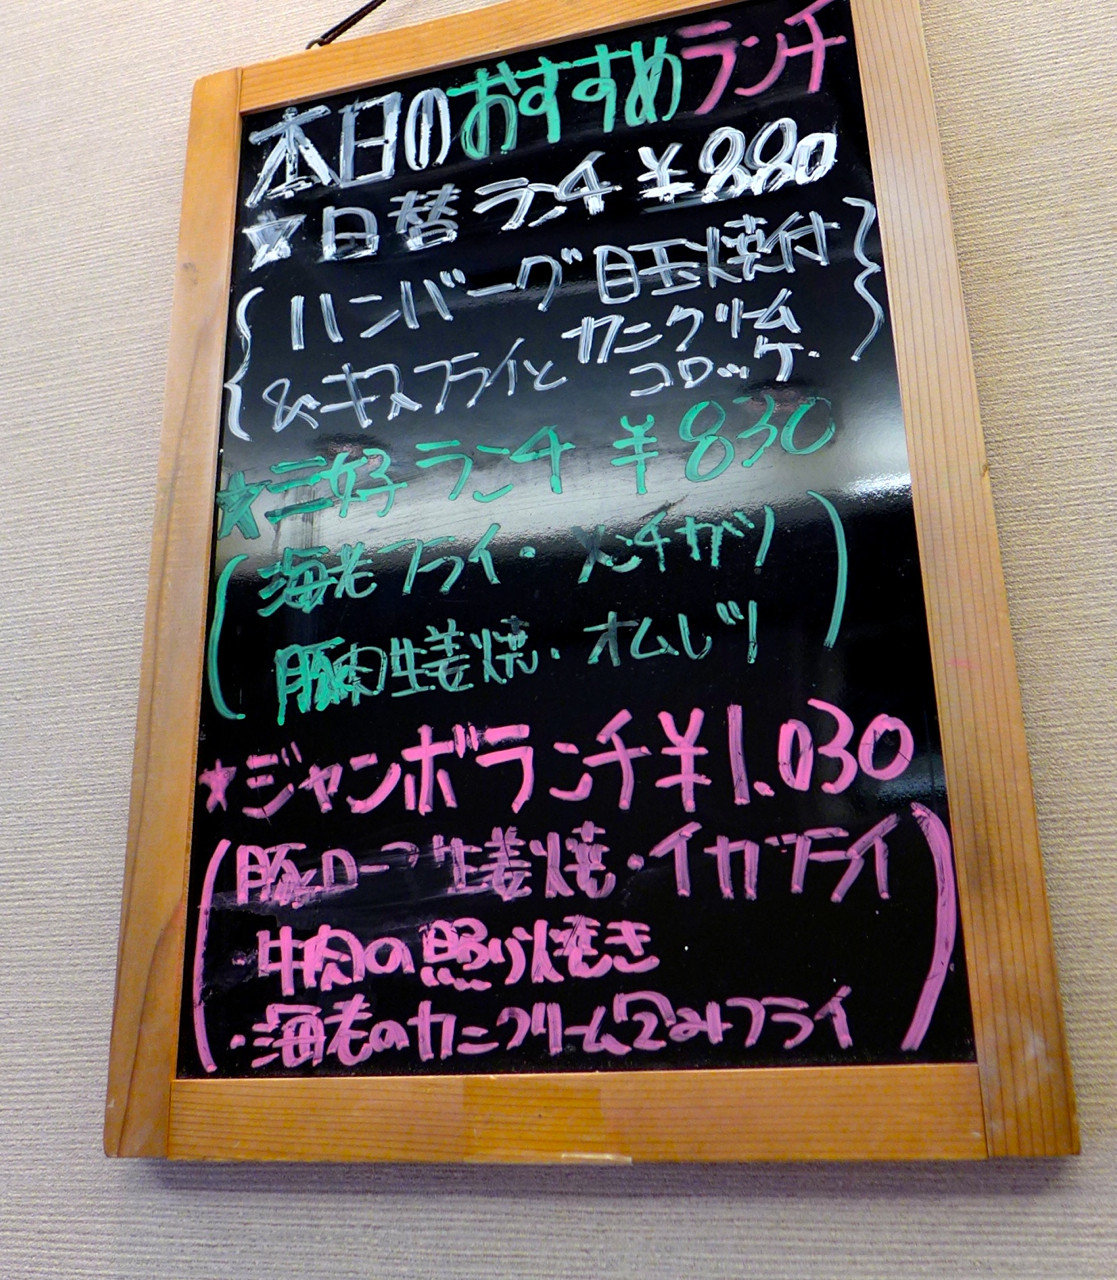 本日のおすすめランチ
☆日替ランチ ¥880
ハンバーグ目玉焼付
&キスフライとカニクリーム
コロッケ
★三好ランチ ¥830
(海老フライ・メンチカツ
豚肉生姜焼・オムレツ)
★ジャンボランチ¥1.030
(豚ロース生姜焼・イカフライ
・牛肉の照り焼き
・海老のカニクリームつつみフライ)